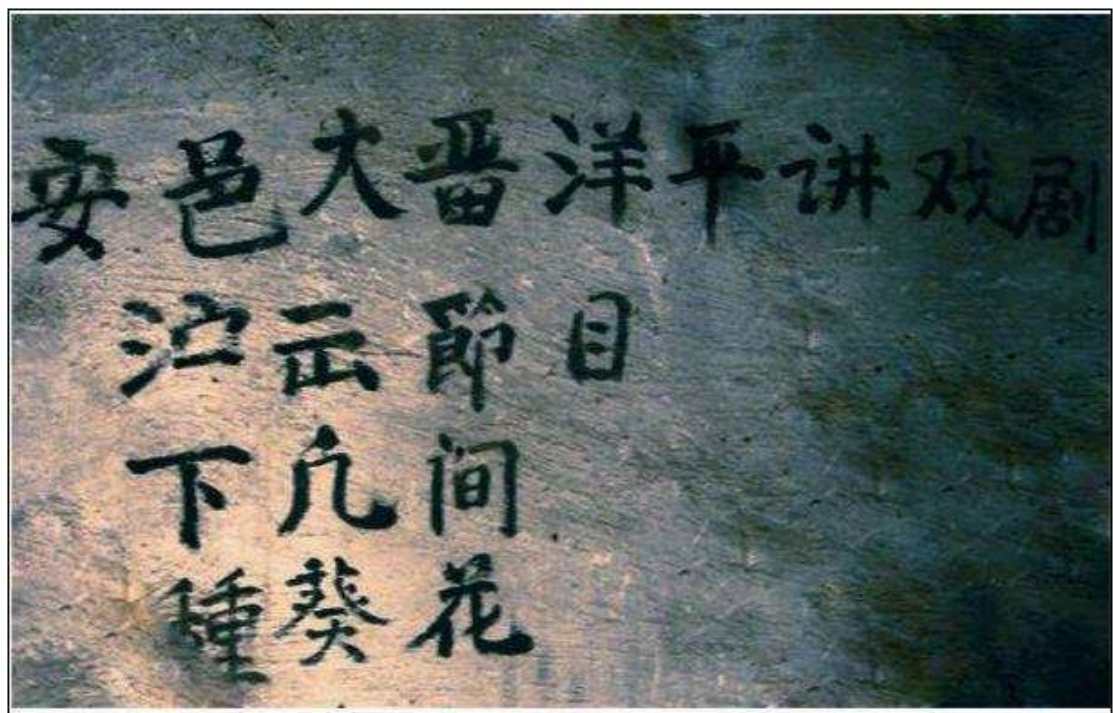 安邑大晋洋平讲戏剧
節目
下凡间
種葵花